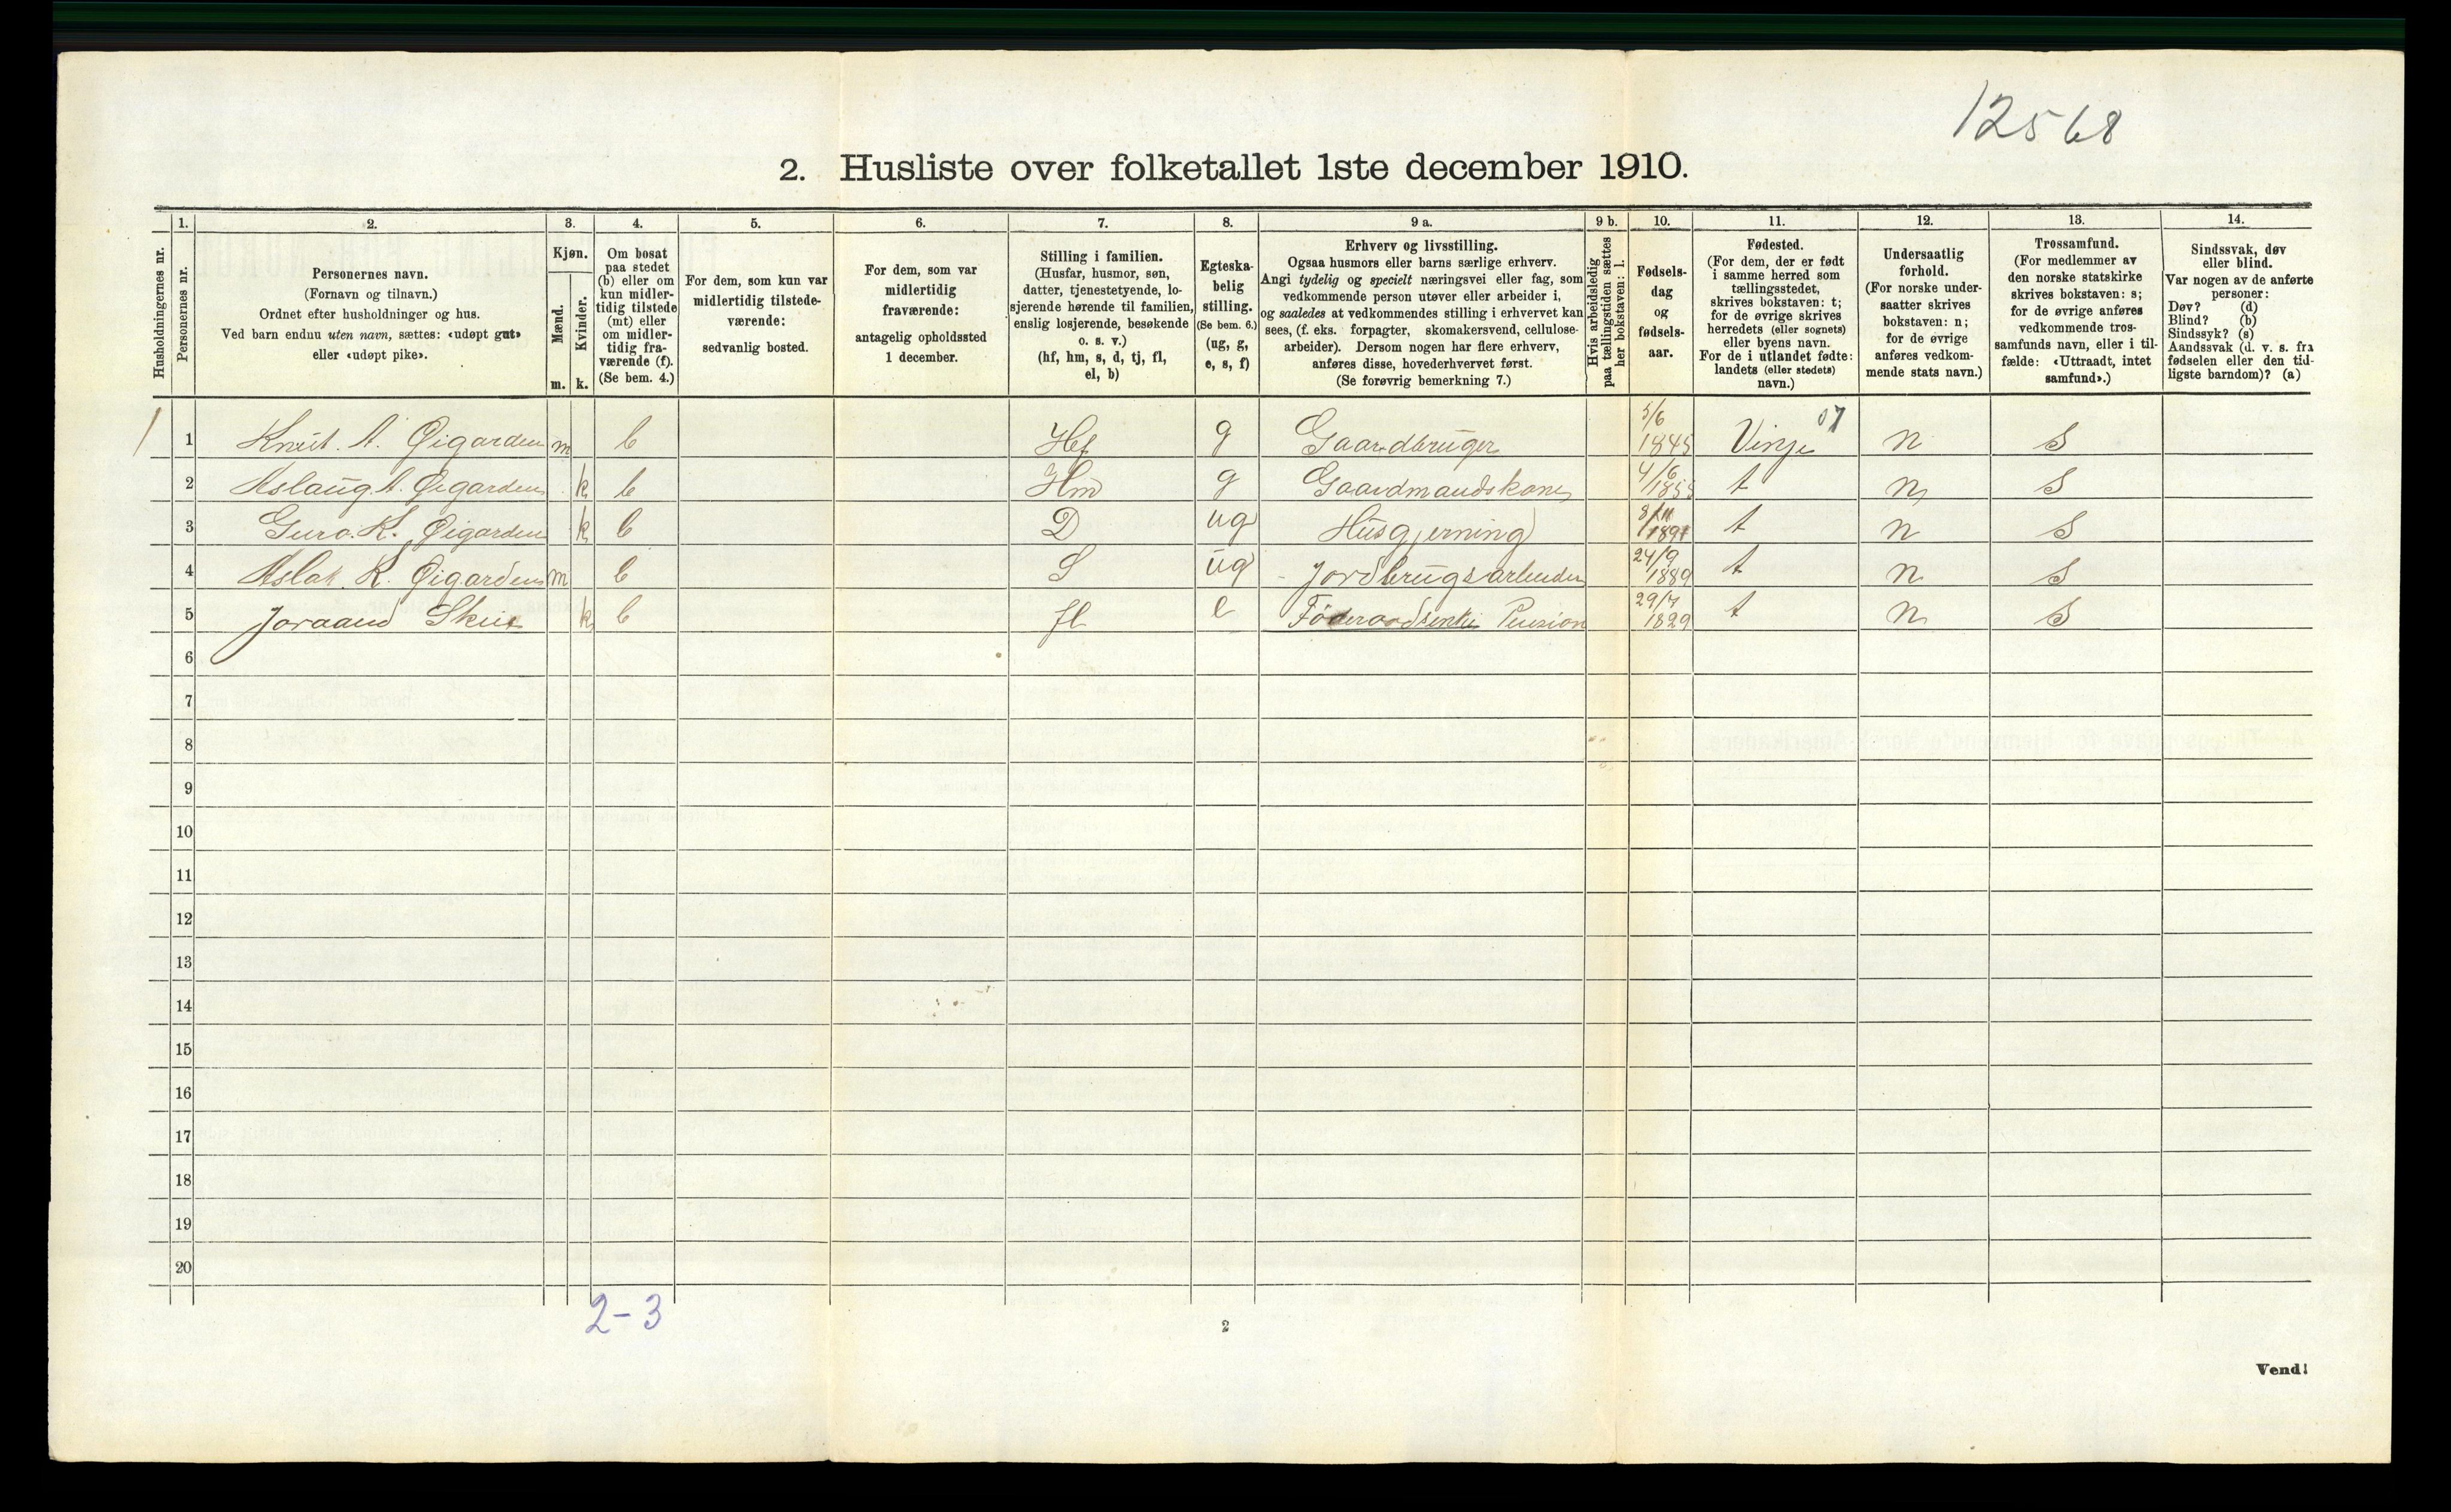 12568
2. Husliste over folketallet 1ste december 1910.
Husholdningernes nr.
1.
Personernes nr.
2.
Personernes navn.
(Fornavn og tilnavn.)
Ordnet efter husholdninger og hus.
Ved barn endnu uten navn, sættes: «udøpt gut»
eller «udøpt pike».
3.
Kjøn.
Mænd.
Kvinder.
m. k.
4.
Om bosat
paa stedet
(b) eller om
kun midler-
tidig tilstede
(mt) eller
om midler-
tidig fra-
værende (f).
(Se bem. 4.)
5.
For dem, som kun var
midlertidig tilstede-
værende:
sedvanlig bosted.
6.
For dem, som var
midlertidig
fraværende:
antagelig opholdssted
1 december.
7.
Stilling i familien.
(Husfar, husmor, søn,
datter, tjenestetyende, lo-
sjerende hørende til familien,
enslig losjerende, besøkende
o. s. v.)
(hf, hm, s, d, tj, fl,
el, b)
8.
Egteska-
belig
stilling.
(Se bem. 6.)
(ug, g,
e, s, f)
9 a.
Erhverv og livsstilling.
Ogsaa husmors eller barns særlige erhverv.
Angi tydelig og specielt næringsvei eller fag, som
vedkommende person utøver eller arbeider i,
og saaledes at vedkommendes stilling i erhvervet kan
sees, (f. eks. forpagter, skomakersvend, cellulose-
arbeider). Dersom nogen har flere erhverv,
anføres disse, hovederhvervet først.
(Se forøvrig bemerkning 7.)
9 b.
Hvis arbeidsledig
paa tællingstiden sættes
her bokstaven: l.
10.
Fødsels-
dag
og
fødsels-
aar.
11.
Fødested.
(For dem, der er født
i samme herred som
tællingsstedet,
skrives bokstaven: t;
for de øvrige skrives
herredets (eller sognets)
eller byens navn.
For de i utlandet fødte:
landets (eller stedets)
navn.)
12.
Undersaatlig
forhold.
(For norske under-
saatter skrives
bokstaven: n;
for de øvrige
anføres vedkom-
mende stats navn.)
13.
Trossamfund.
(For medlemmer av
den norske statskirke
skrives bokstaven: s;
for de øvrige anføres
vedkommende tros-
samfunds navn, eller i til-
fælde: «Uttraadt, intet
samfund».)
14.
Sindssvak, døv
eller blind.
Var nogen av de anførte
personer:
Døv? (d)
Blind? (b)
Sindssyk? (s)
Aandssvak (d. v. s. fra
fødselen eller den tid-
ligste barndom)? (a)
1 1 Knut. A. Øigarden m b Hf g Gaardbruger 5/6 1845 Vinje 07 n S
2 Aslaug A. Øigarden k b Hm g Gaardmandskone 4/6 1855 t n S
3 Guro. K. Øigarden k b D ug Husgjerning t n S
4 Aslak K. Øigarden m b S ug Jordbrugsarbeider 24/9 1889 t n S
5 Joraand k b fl e Pension 29/7 1829 t n S
6
7
8
9
10
11
12
13
14
15
16
17
18
19
20
2-3
2
Vend!